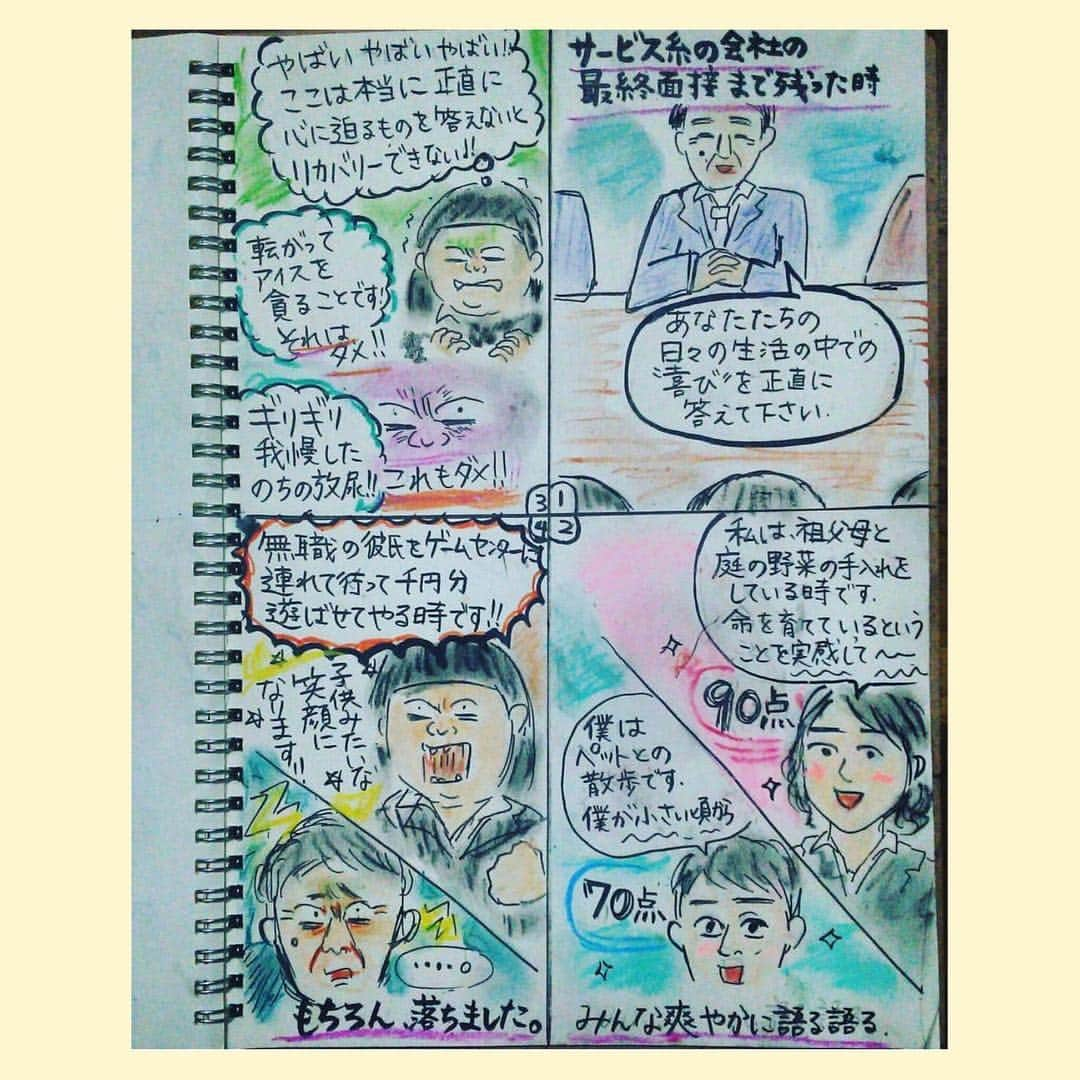 サービス系の会社の
最終面接まで残った時
あなたたちの
日々の生活の中での
"喜び"を正直に
答えて下さい.
1
2
3
4
私は、祖父母と
庭の野菜の手入れを
している時です.
命を育てているという
ことを実感して〜〜
90点
僕は
ペットとの
散歩です.
僕が小さい頃から
70点
みんな爽やかに語る語る.
やばいやばいやばい!!
ここは本当に正直に
心に迫るものを答えないと
リカバリーできない!!
転がって
アイスを
貪ることです!
それは
ダメ!!
ギリギリ
我慢した
のちの放尿!!
これもダメ!!
無職の彼氏をゲームセンターに
連れて待って千円分
遊ばせてやる時です!!
子供みたいな
笑顔に
なります!!
・・・・。
もちろん、落ちました。